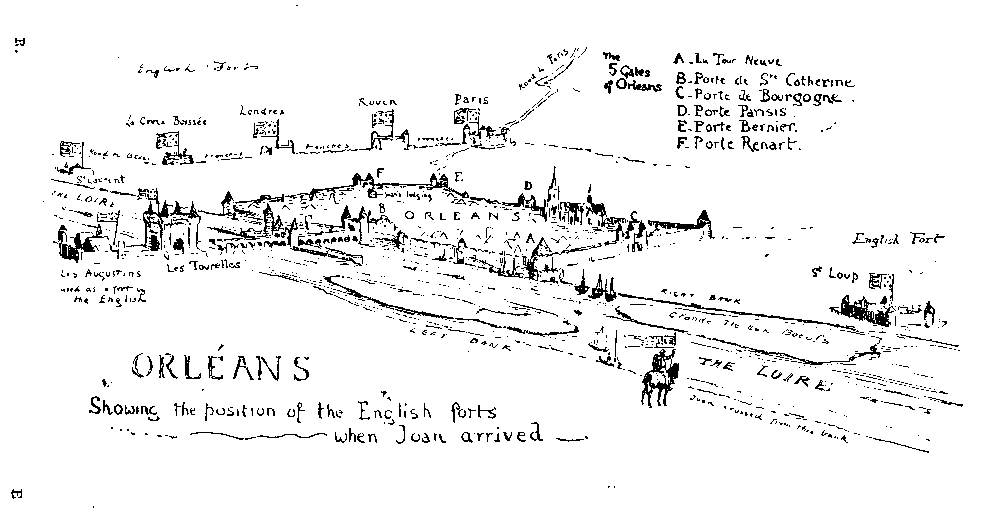 English Forts
Road to Paris
The
5 Gates
of Orleans
A. La Tour Neuve
B. Porte de Ste Catherine
C. Porte de Bourgogne.
D. Porte Parisis.
E. Porte Bernier.
F. Porte Renart.
La Croix Boissée
Londres
Rouen
Paris
St Laurent
THE LOIRE
F
E
D
B
ORLEANS
C
A
Les Augustins
used as a fort by
the English
Les Tourelles
English Fort
St Loup
RIGHT BANK
Grande Ile aux Boeufs
LEFT BANK
THE LOIRE
Joan crossed from this bank
ORLÉANS
Showing the position of the English forts
when Joan arrived